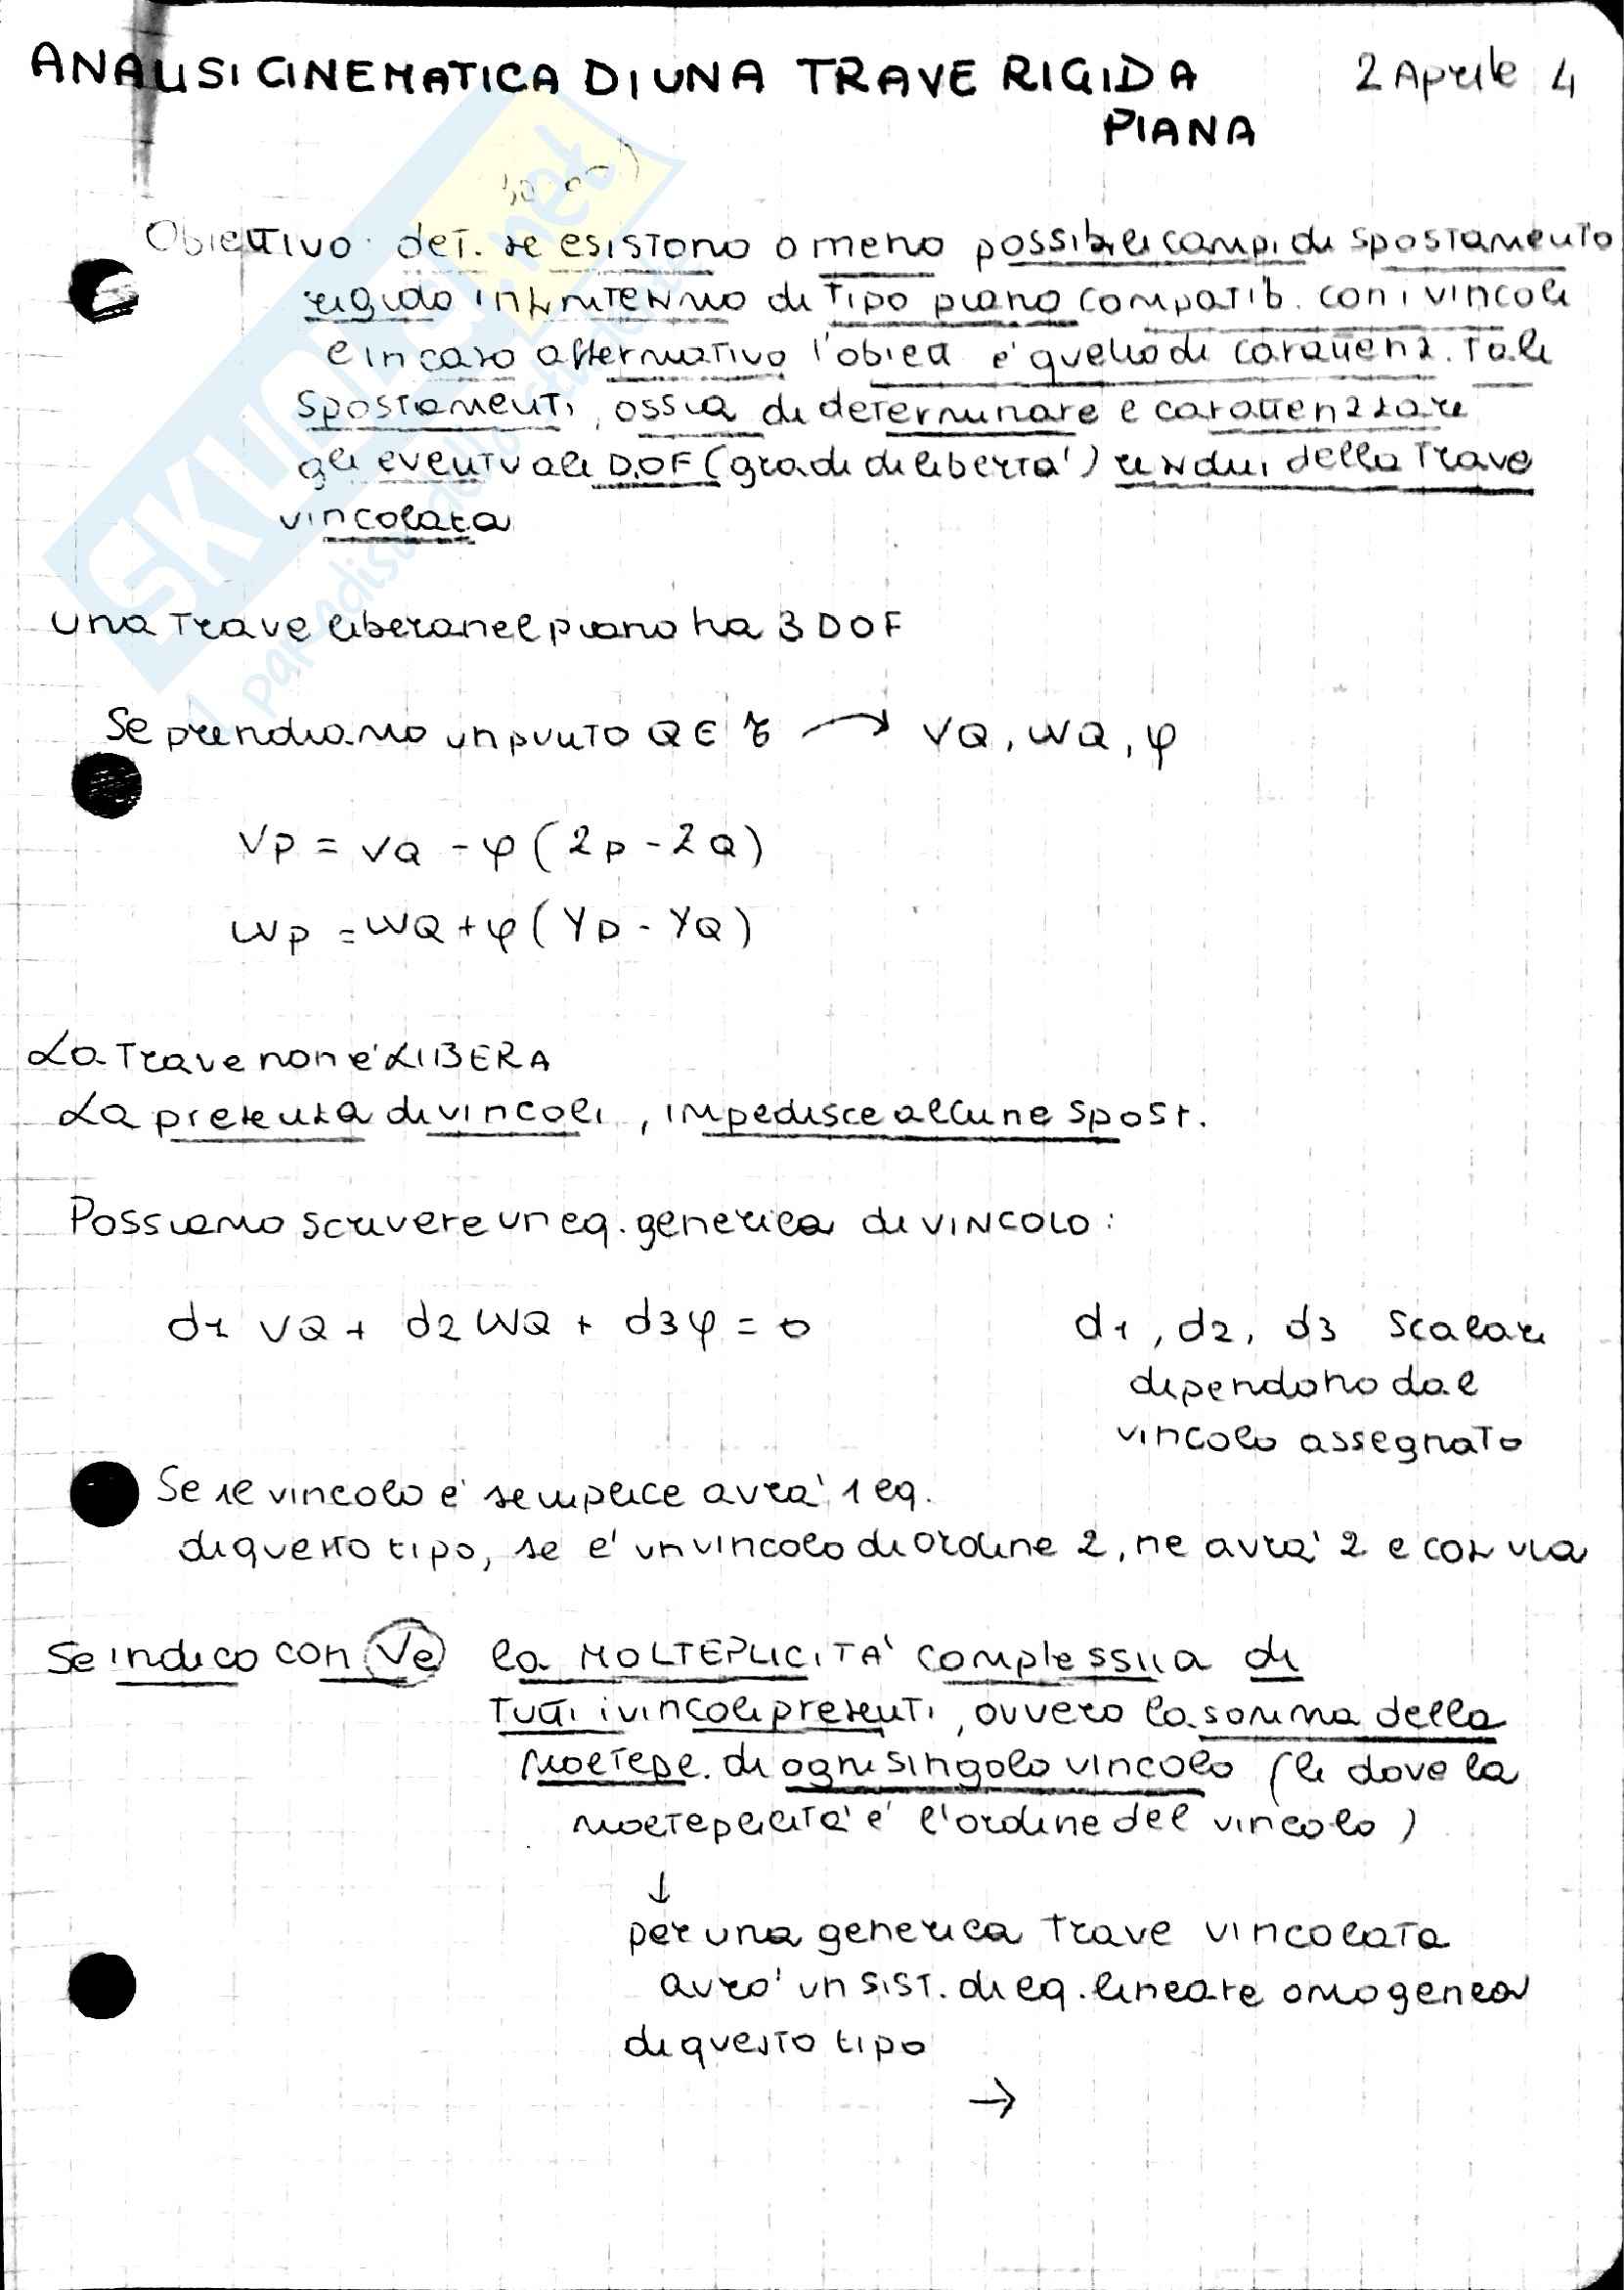 ANALISI CINEMATICA DI UNA TRAVE RIGIDA 2 Aprile 4
PIANA
Obiettivo: det. se esistono o meno possibili campi di spostamento
rigido infinitesimo di tipo piano compatib. con i vincoli
e in caso affermativo l'obiett è quello di caratterizz. tali
spostamenti, ossia di determinare e caratterizzare
gli eventuali D.O.F (gradi di libertà) residui della trave
vincolata
una trave libera nel piano ha 3 DOF
Se prendiamo un punto Q ∈ → VQ, WQ, φ
VP = VQ - φ (ZP - ZQ)
WP = WQ + φ (YP - YQ)
La trave non è LIBERA
La presenza di vincoli, impedisce alcune spost.
Possiamo scrivere un eq. generica di VINCOLO:
d1 VQ + d2 WQ + d3 φ = 0 d1, d2, d3 scalari
dipendono dal
vincolo assegnato
Se il vincolo è semplice avrà 1 eq.
di questo tipo, se è un vincolo di ordine 2, ne avrà 2 e così via
Se indico con Ve la MOLTEPLICITÀ complessiva di
tutti i vincoli presenti, ovvero la somma della
moltepl. di ogni singolo vincolo (lì dove la
molteplicità è l'ordine del vincolo)
↓
per una generica trave vincolata
avrò un sist. di eq. lineare omogenea
di questo tipo
→
SKUOLA.net
il paradiso dello studente